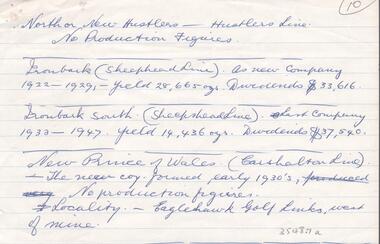 10
North or New Hustlers — Hustlers Line.
No Production Figures.
Ironbark (Sheepshead Line). As new Company
1922 – 1929, – yield 28,665 ozs. Dividends $33,616.
Ironbark South. (Sheepshead Line). Last Company
1933 – 1947. yield 14,436 ozs. Dividends $37,540.
New Prince of Wales. (Carshalton Line)
— The new coy. formed early 1930's, produced
No production figures.
Locality. — Eaglehawk Golf Links, west
of mine.